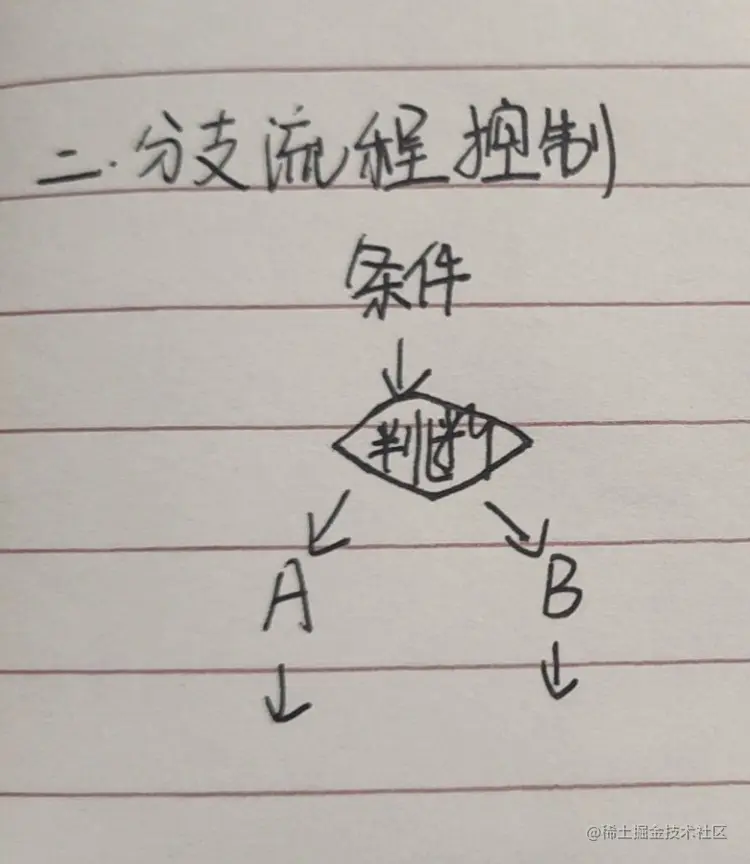 二.分支流程控制
条件
判断
A B
@稀土掘金技术社区